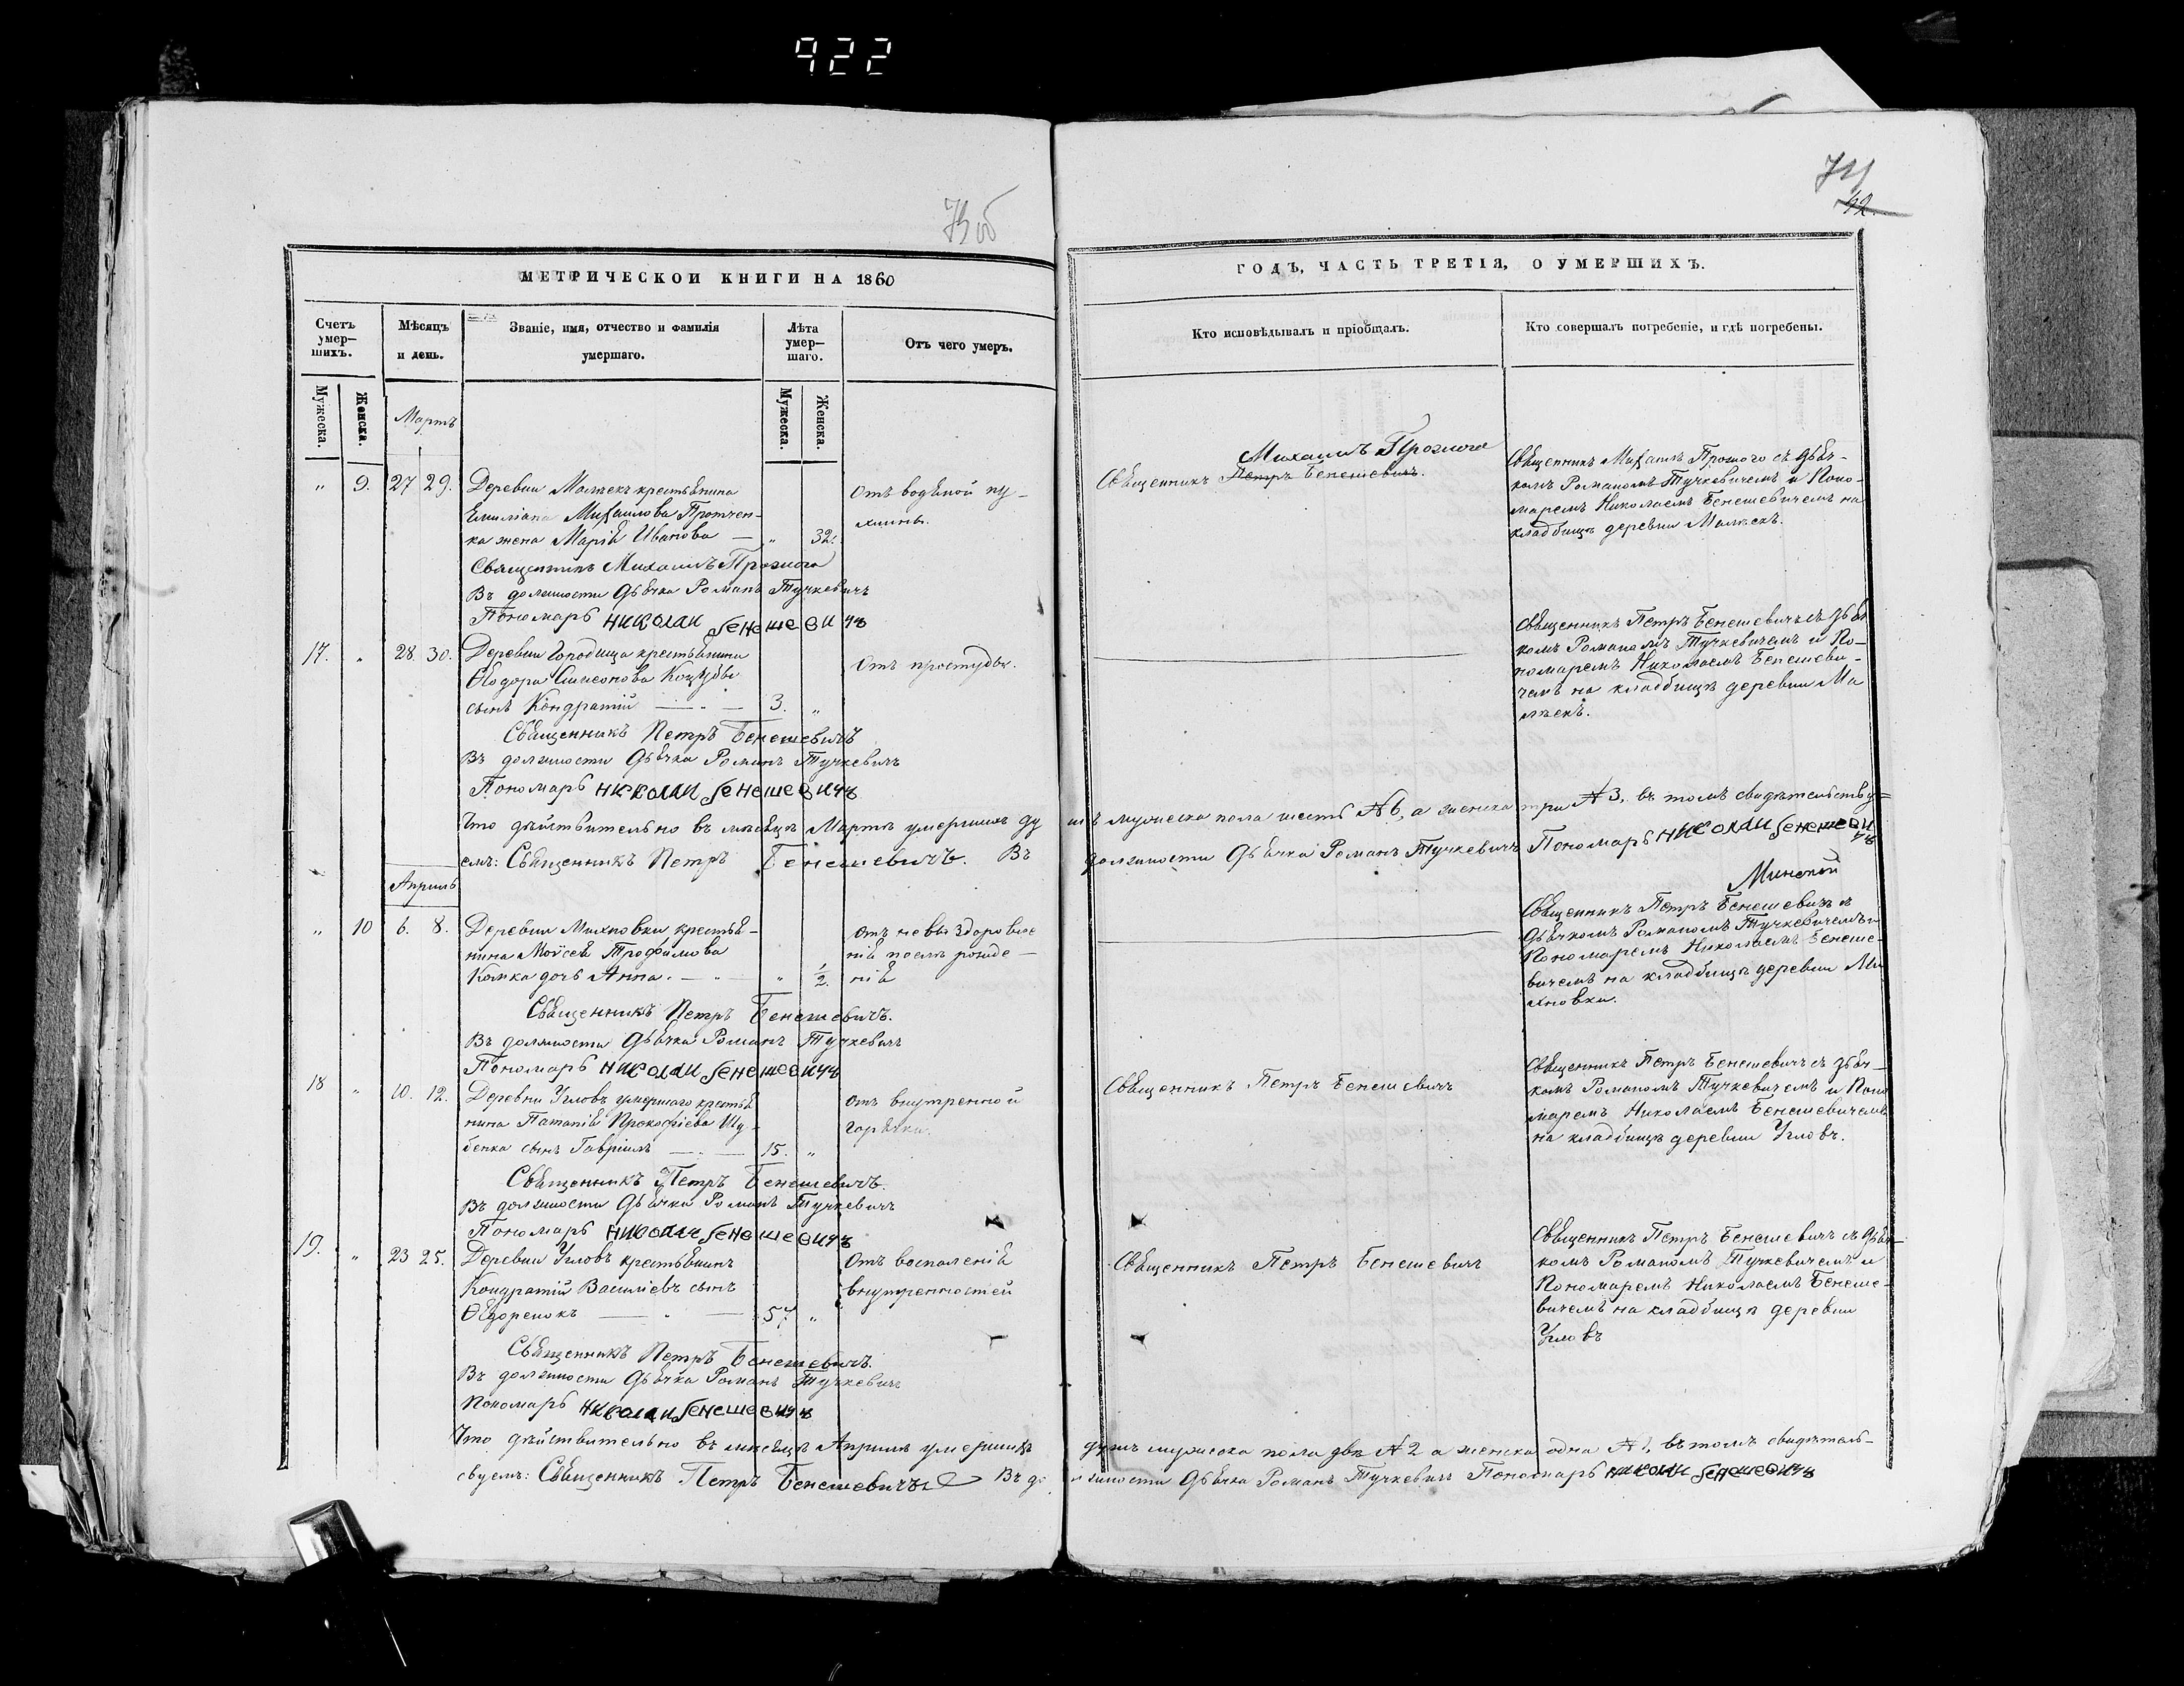 922
73 об
74
42.
МЕТРИЧЕСКОЙ КНИГИ НА 1860
ГОДЪ, ЧАСТЬ ТРЕТІЯ, О УМЕРШИХЪ.
Счетъ умер-
шихъ.
Мѣсяцъ
и день.
Званіе, имя, отчество и фамилія
умершаго.
Лѣта
умер-
шаго.
Отъ чего умеръ.
Кто исповѣдывалъ и пріобщалъ.
Кто совершалъ погребеніе, и гдѣ погребены.
Мужеска.
Женска.
Мужеска.
Женска.
Мартъ
" 9. 27 29. Деревни крестьянина
Емиліана Михаилова Протчен-
ка жена Марія Иванова — " 32.
Отъ водяной пу-
хлины.
Михаилъ
Священникъ Петръ Бенешевичъ.
Священникъ Михаилъ съ дьяч-
комъ Романомъ Тучкевичемъ и Поно-
маремъ Николаемъ Бенешевичемъ на
кладбищѣ деревни
Священникъ Михаилъ
Въ должности Дьячка Романъ Тучкевичъ
Пономарь Николай Бенешевичъ
17. " 28. 30. Деревни Городища крестьянина
Ѳеодора Симеонова Коцубы
сынъ Кондратій — 3. "
Отъ простуды.
Священникъ Петръ Бенешевичъ съ дьяч
комъ Романомъ Тучкевичемъ и По-
номаремъ Николаемъ Бенешеви-
чемъ на кладбищѣ деревни
Священникъ Петръ Бенешевичъ
Въ должности Дьячка Романъ Тучкевичъ
Пономарь Николай Бенешевичъ
Что дѣйствительно въ мѣсяцѣ Мартѣ умершихъ ду шъ мужеска пола шесть № 6, а женска три № 3. въ томъ свидѣтельству=
емъ: Священникъ Петръ Бенешевичъ. Въ должности Дьячка Романъ Тучкевичъ Пономарь Николай Бенешеви
чъ
Апрѣль
" 10 6. 8. Деревни Михновки крестья-
нина Моѵсея Трофимова
дочь Анна. — " 1/2.
отъ невыздоровле
нія послѣ рожде-
нія
Священникъ Петръ Бенешевичъ съ
Дьячкомъ Романомъ Тучкевичемъ и
Пономаремъ Николаемъ Бенеше-
вичемъ на кладбищѣ деревни Ми
хновки.
Священникъ Петръ Бенешевичъ.
Въ должности Дьячка Романъ Тучкевичъ
Пономарь Николай Бенешевичъ
18 " 10. 12. Деревни Угловъ умершаго крестья
нина Потапія Прокофіева Шу-
бенка сынъ Гавріилъ — 15. "
Отъ внутренной
горячки.
Священникъ Петръ Бенешевичъ
Священникъ Петръ Бенешевичъ съ дьяч-
комъ Романомъ Тучкевичемъ и Поно
маремъ Николаемъ Бенешевичемъ
на кладбищѣ деревни Угловъ.
Священникъ Петръ Бенешевичъ.
Въ должности Дьячка Романъ Тучкевичъ
Пономарь Николай Бенешевичъ
19. " 23 25. Деревни Угловъ крестьянинъ
Кондратій Василіевъ сынъ
Ѳедоренокъ — 57. "
Отъ воспаленія
внутренностей
Священникъ Петръ Бенешевичъ
Священникъ Петръ Бенешевичъ съ дьяч-
комъ Романомъ Тучкевичемъ и
Пономаремъ Николаемъ Бенеше-
вичемъ на кладбищѣ деревни
Угловъ
Священникъ Петръ Бенешевичъ.
Въ должности Дьячка Романъ Тучкевичъ
Пономарь Николай Бенешевичъ
Что дѣйствительно въ мѣсяцѣ Апрѣлѣ умершихъ душъ мужеска пола двѣ № 2 а женска одна № 1, въ томъ свидѣтель-
ствуемъ: Священникъ Петръ Бенешевичъ Въ должности Дьячка Романъ Тучкевичъ Пономарь Николай Бенешевичъ